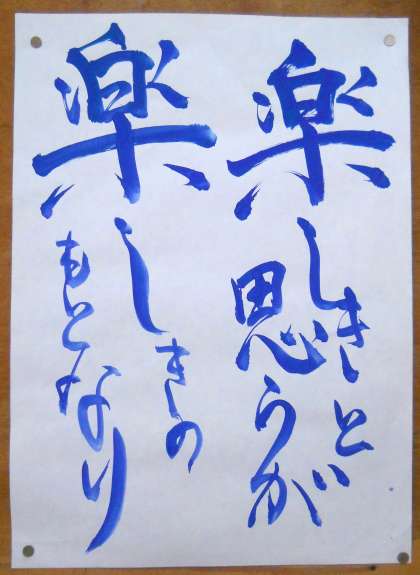 楽しきと
思うが
楽しきの
もとなり